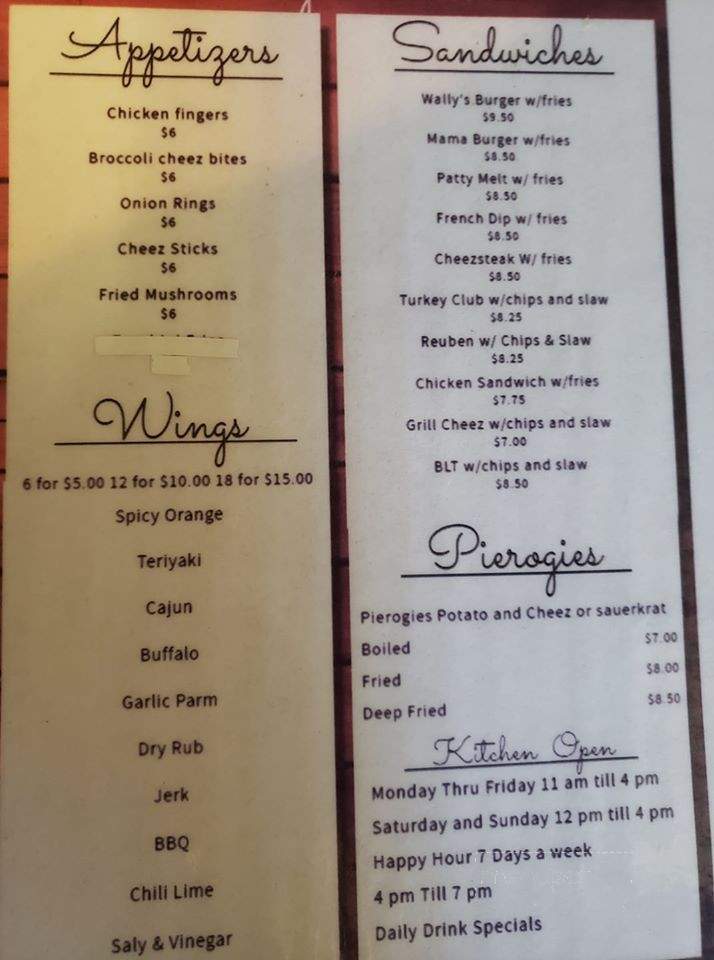 Appetizers
Chicken fingers
$6
Broccoli cheez bites
$6
Onion Rings
$6
Cheez Sticks
$6
Fried Mushrooms
$6
Wings
6 for $5.00 12 for $10.00 18 for $15.00
Spicy Orange
Teriyaki
Cajun
Buffalo
Garlic Parm
Dry Rub
Jerk
BBQ
Chili Lime
Saly & Vinegar
Sandwiches
Wally's Burger w/fries
$9.50
Mama Burger w/fries
$8.50
Patty Melt w/ fries
$8.50
French Dip w/ fries
$8.50
Cheezsteak W/ fries
$8.50
Turkey Club w/chips and slaw
$8.25
Reuben w/ Chips & Slaw
$8.25
Chicken Sandwich w/fries
$7.75
Grill Cheez w/chips and slaw
$7.00
BLT w/chips and slaw
$8.50
Pierogies
Pierogies Potato and Cheez or sauerkrat
Boiled $7.00
Fried $8.00
Deep Fried $8.50
Kitchen Open
Monday Thru Friday 11 am till 4 pm
Saturday and Sunday 12 pm till 4 pm
Happy Hour 7 Days a week
4 pm Till 7 pm
Daily Drink Specials